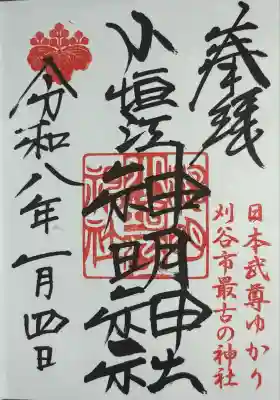 奉拝
日本武尊ゆかり
刈谷市最古の神社
小垣江神明神社
令和八年一月四日